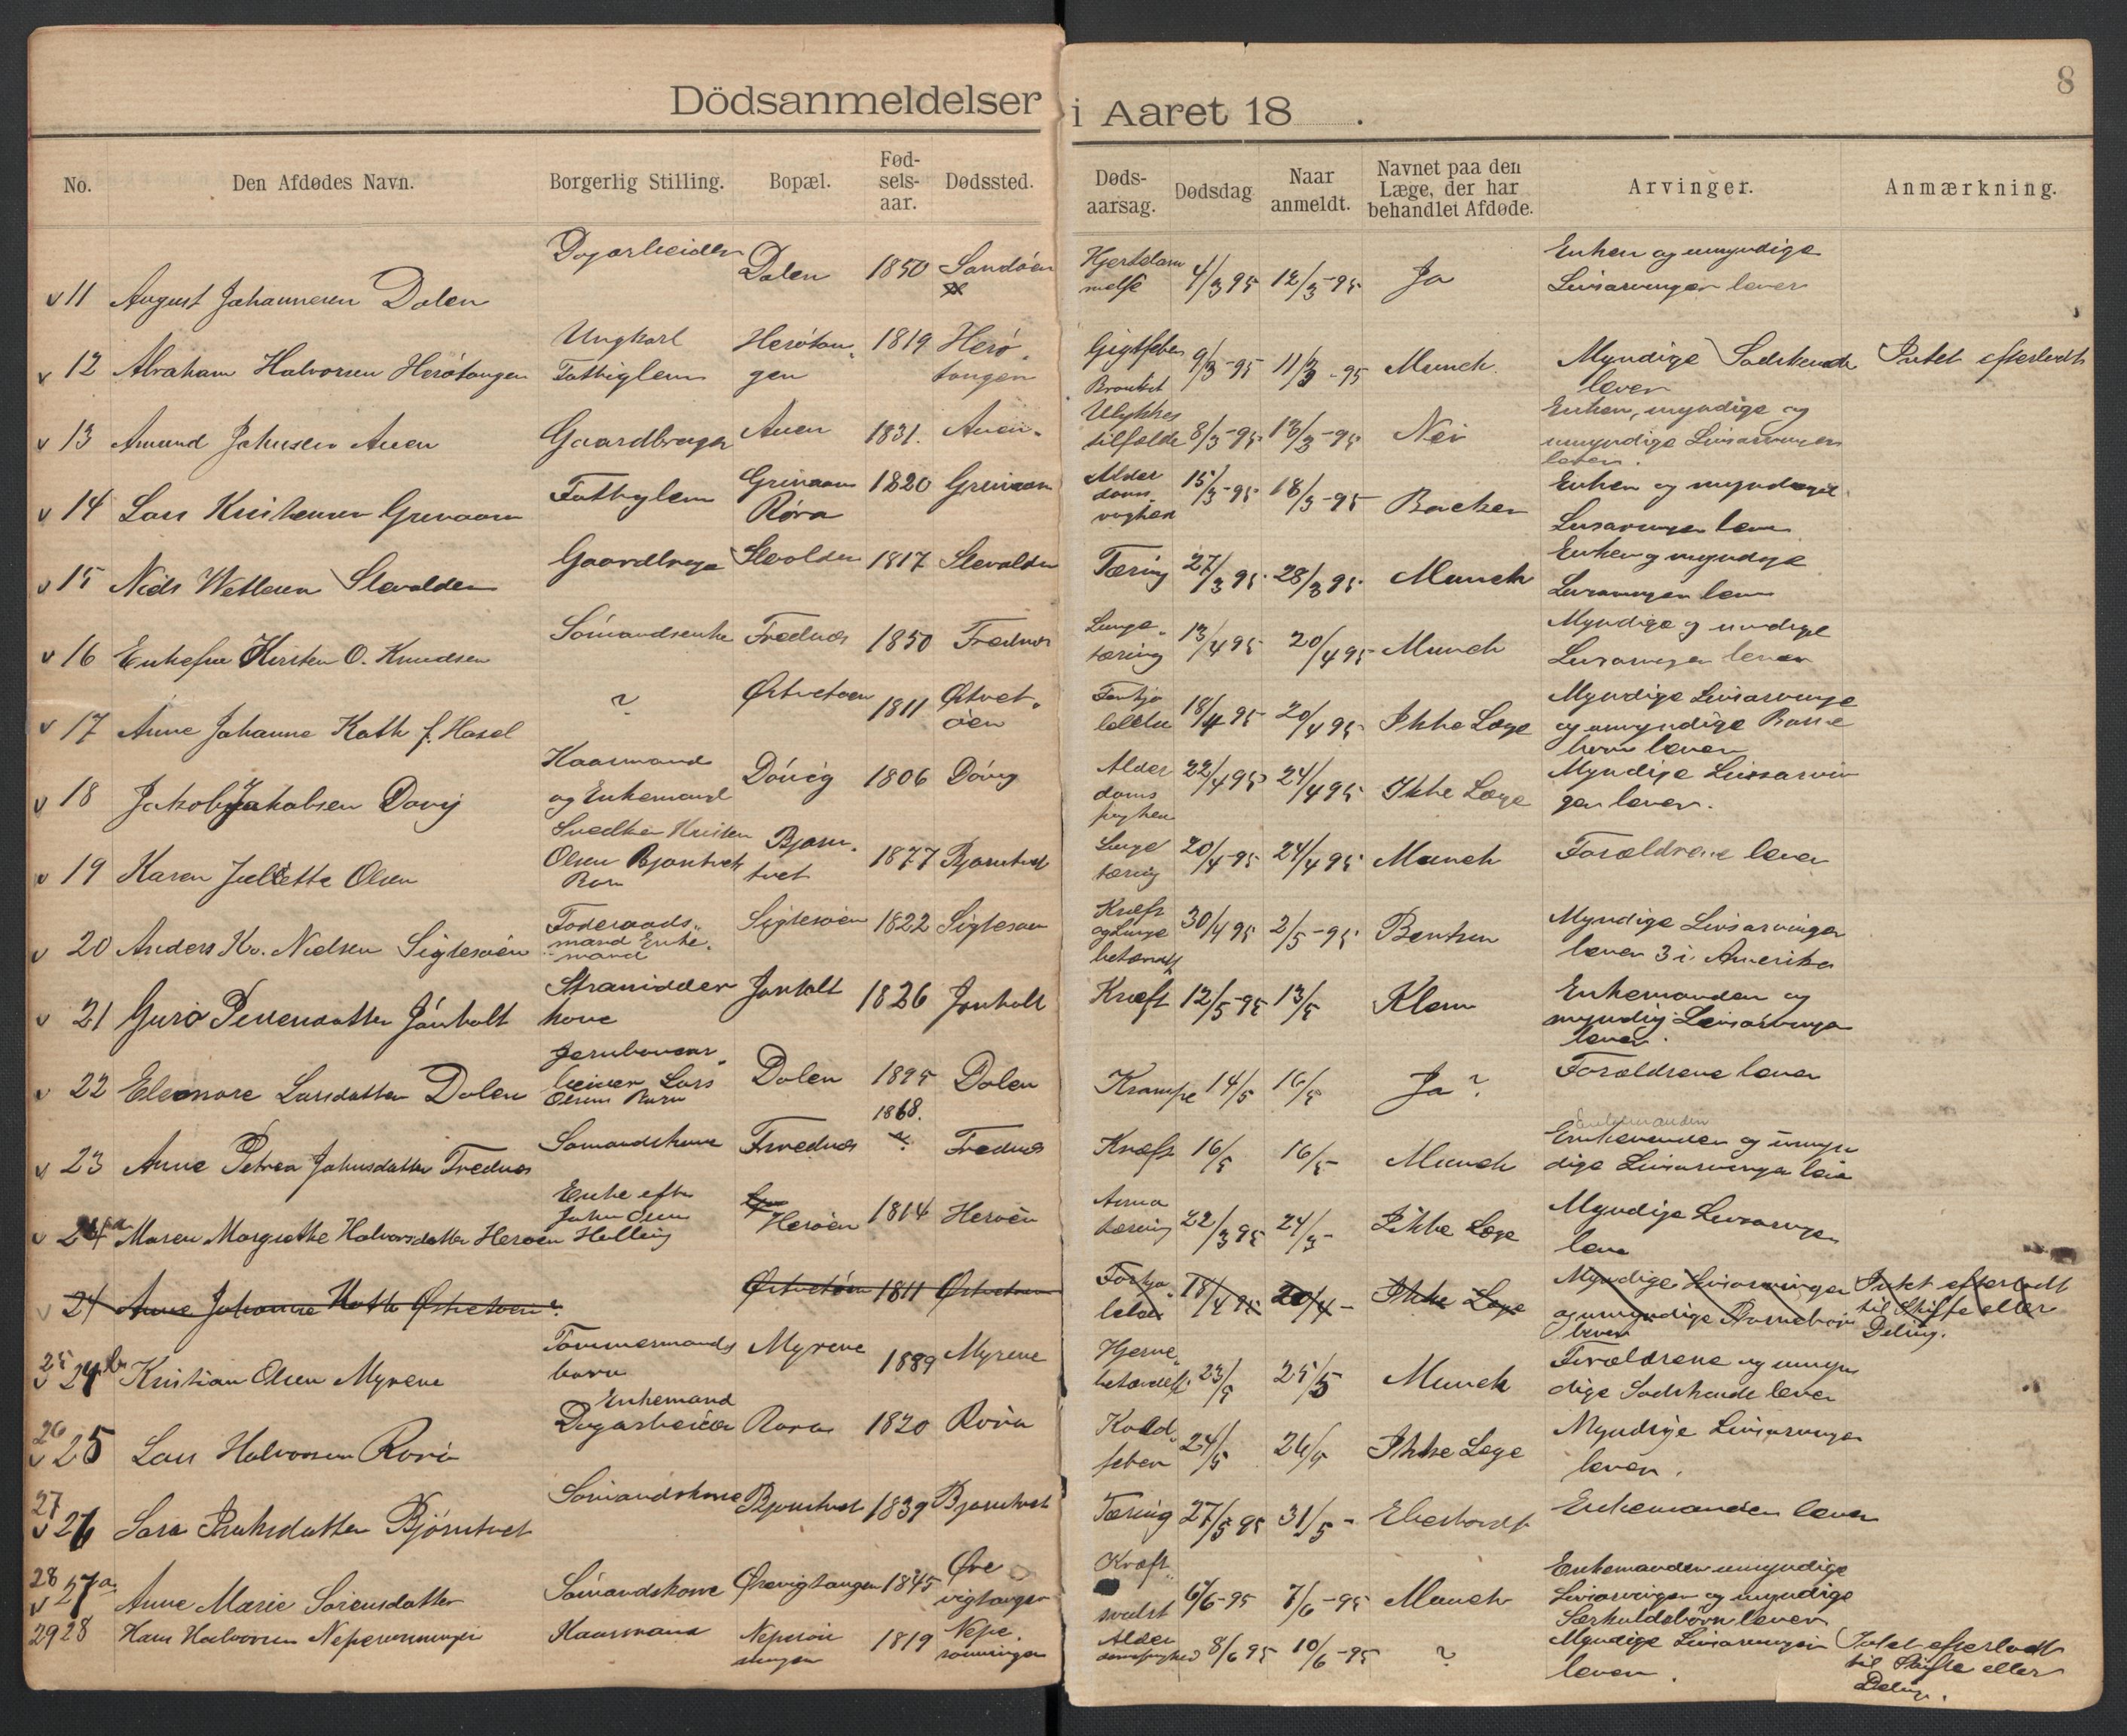 Dödsanmeldelser i Aaret 18 .
8
No. Den Afdødes Navn. Borgerlig Stilling. Bopæl. Fød-sels-aar. Dødssted. Døds-aarsag. Dødsdag Naar anmeldt. Navnet paa den Læge, der har behandlet Afdøde. Arvinger. Anmærkning.
v 11 August Johannesen Dalen Dagarbeider Dalen 1850 Sandöen Hjertelammelse 4/3 95 12/3-95 Ja Enken og umyndige Livsarvinger lever
v 12 Abraham Halvorsen Herötangen Ungkarl Fattiglem Herötangen 1819 Herötangen Gigtfeber 9/3-95 11/3-95 Munch Myndige Sødskende lever Intet efterladt
v 13 Amund Johnsen Auen Gaardbruger Auen 1831. Auen Ulykkestilfælde 8/3-95 13/3-95 Nei Enken, myndige og umyndige Livsarvinger lever.
v 14 Lars Kristensen Grenaasen Fattiglem Grenaasen Röra 1820 Alderdomssvaghed 15/3-95 18/3-95 Backer Enken og myndige Livsarvinger lever
v 15 Niels Wetlesen Slevolden Gaardbruger Slevolden 1817 Slevolden Tæring 27/3 95 28/3 95 Munch Enken og myndige Livsarvinger lever
v 16 Enkefru Kirsten O. Knudsen Sömandsenke Frednæs 1850 Frednæs Lungetæring 13/4 95 20/4 95 Munch Myndige og umyndige Livsarvinger lever
v 17 Anne Johanne Kath f. Hasel ? Østvetøen 1811 Østvetöen Forkjølelse 18/4 95 20/4 95 Ikke Læge Myndige Livsarvinge og umyndige Barnebørn lever
v 18 Jakob Jakobsen Dövig Kaarmand og Enkemand Dövig 1806 Dövig Alderdoms 22/4 95 24/4 95 Ikke Læge Myndige Livsarvinger lever.
v 19 Karen Juliette Olsen Olsen Bjørntvedt Barn Bjørntvet 1877 Bjørntvet Lungetæring 20/4-95 24/4 95 Munch Forældrene lever
v 20 Anders Kr. Nielsen Siglesøen Føderaadsmand Enkemand Siglesøen 1822 Siglesøen Kræft og Lungebetændelse 30/4 95 2/5-95 Bentzen Myndige Livsarvinger lever 3 i Amerika
v 21 Guro Pedersdatter Jönholt kone Jönholt 1826 Jönholt Kræft 12/5-95 13/5 Klem Enkemanden og myndig Livsarvinger lever.
v 22 Eleonore Larsdatter Dalen Jernbanearbeider Lars Olsens Barn Dalen 1895 Dalen Krampe 14/5 16/5 Ja ? Forældrene lever
v 23 Anne Petrea Johnsdatter Frednæs Sömandskone Frednæs 1868. Frednæs Kræft 16/5 16/5- Munch Enkemanden og umyndige Livsarvinger leve
v 24a Maren Margrethe Halvorsdatter Heröen Enke efter John Olsen Helling Heröen 1814 Heröen tæring 22/3 95 24/3- Ikke Læge Myndige Livsarvinger leve
v 24 Anne Johanne Kath Østvetøen ? Østvetøen 1811 Østvetøen Forkjølelse 18/4 95 20/4- Ikke Læge Myndige Livsarvinger og umyndige Barnebørn lever Intet efterladt til Skifte eller Deling.
25 v 24b Kristian Olsen Myrene Tømmermands barn Myrene 1889 Myrene Hjernebetændelse 23/5 25/5 Munch Forældrene og umyndige Sødskende lever
26 v 25 Lars Halvorsen Rörö Enkemand Dagarbeider Röra 1820 Röra Koldfeber 24/5 26/5 Ikke Læge Myndige Livsarvinger lever.
27 v 26 Sara Isaksdatter Bjørntvet Sömandskone Bjørntvet 1839 Bjørntvet Tæring 27/5 95 31/5- Eberhardt Enkemanden lever
28 v 27a Anne Marie Sørensdatter Sömandskone Ørevigtangen 1845 Ørevigtangen Kræftsvulst 6/6-95 7/6-95 Munch Enkemanden umyndige Livsarvinger og myndige Særkuldsbörn lever
29 28 Hans Halvorsen Kaarmand 1819 Alderdomssvaghed 8/6 95 10/6-95 ? Myndige Livsarvinger lever. Intet efterladt til Skifte eller Deling.